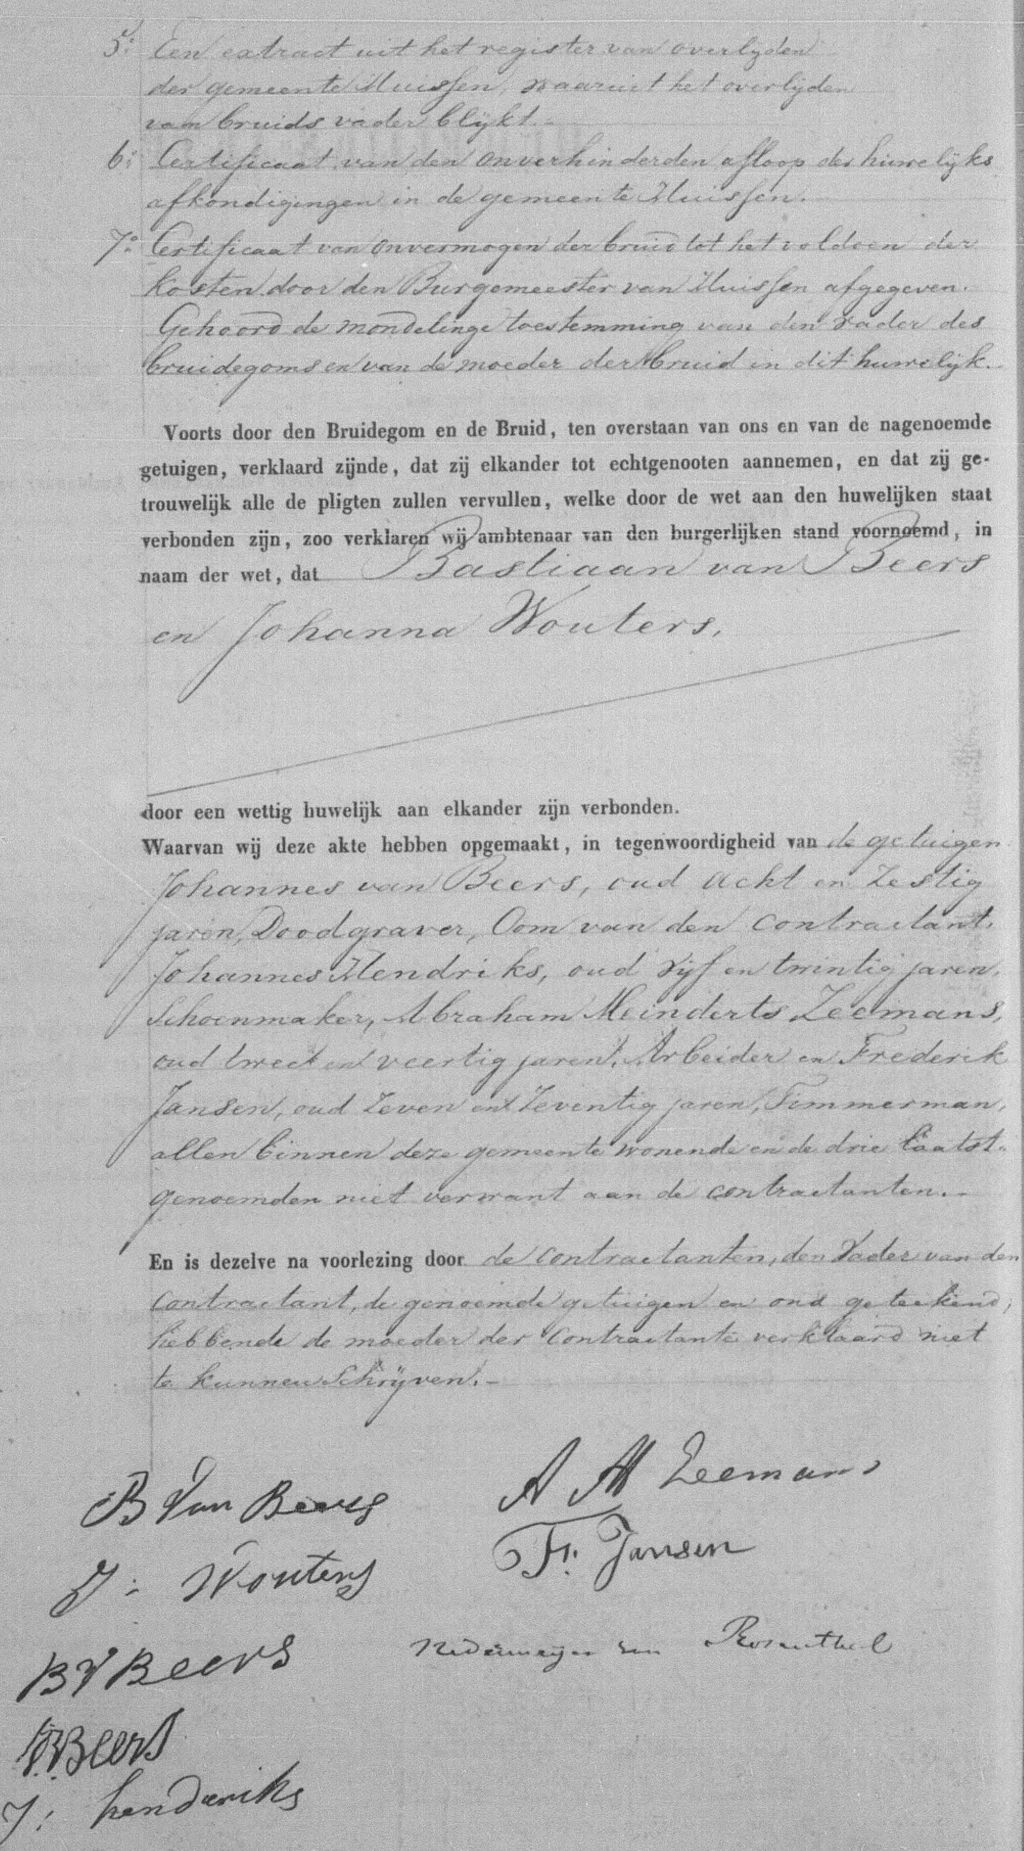 5º. Een extract uit het register van overlyden
der gemeente Huissen, waaruit het overlijden
van bruids vader blijkt.-
6º. Certificaat van den onverhinderden afloop der huwelijks
afkondigingen in de gemeente Huissen.
7º. Certificaat van onvermogen der bruid tot het voldoen der
kosten door den Burgemeester van Huissen afgegeven.
Gehoord de mondelinge toestemming van den Vader des
bruidegoms en van de moeder der bruid in dit huwelijk.-
Voorts door den Bruidegom en de Bruid, ten overstaan van ons en van de nagenoemde
getuigen, verklaard zijnde, dat zij elkander tot echtgenooten aannemen, en dat zij ge-
trouwelijk alle de pligten zullen vervullen, welke door de wet aan den huwelijken staat
verbonden zijn, zoo verklaren wij ambtenaar van den burgerlijken stand voornoemd, in
naam der wet, dat Bastiaan van Beers
en Johanna Wouters,
door een wettig huwelijk aan elkander zijn verbonden.
Waarvan wij deze akte hebben opgemaakt, in tegenwoordigheid van de getuigen
Johannes van Beers, oud acht en Zestig
jaren, Doodgraver, Oom van den contractant,
Johannes Hendriks, oud vijf en twintig jaren,
Schoenmaker, Abraham Meinderts Zeemans,
oud twee en veertig jaren, Arbeider en Frederik
Jansen, oud Zeven en Zeventig jaren, Timmerman,
allen binnen deze gemeente wonende en de drie laatst-
genoemden niet verwant aan de contractanten.-
En is dezelve na voorlezing door de contractanten, den Vader van den
contractant, de genoemde getuigen en ons geteekend,
hebbende de moeder der contractante verklaard niet
te kunnen Schrijven.-
B Van Beers
A M Zeemans
J: Wouters
Fr. Jansen
B V Beers
Nedermeijer van Rosenthal
V Beers
J: henderiks